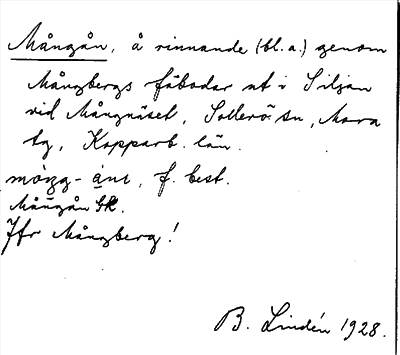 Mångån, å rinnande (bl.a.) genom
Mångbergs fäbodar ut i Siljan
vid Mångnäset, Sollerö sn, Mora
tg, Kopparb. län.
f. best.
Mångån GK.
Jfr Mångberg!
B. Lindén 1928.